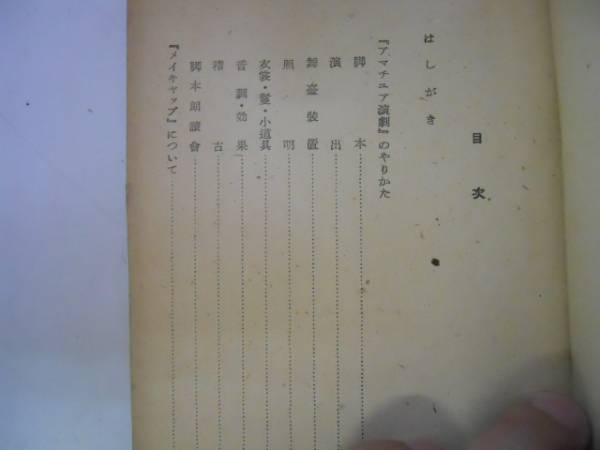 目次
はしがき
『アマチユア演劇』のやりかた
脚本
演出
舞臺裝置
照明
衣裳・鬘・小道具
音調・効果
稽古
脚本朗讀會
『メイキャップ』について